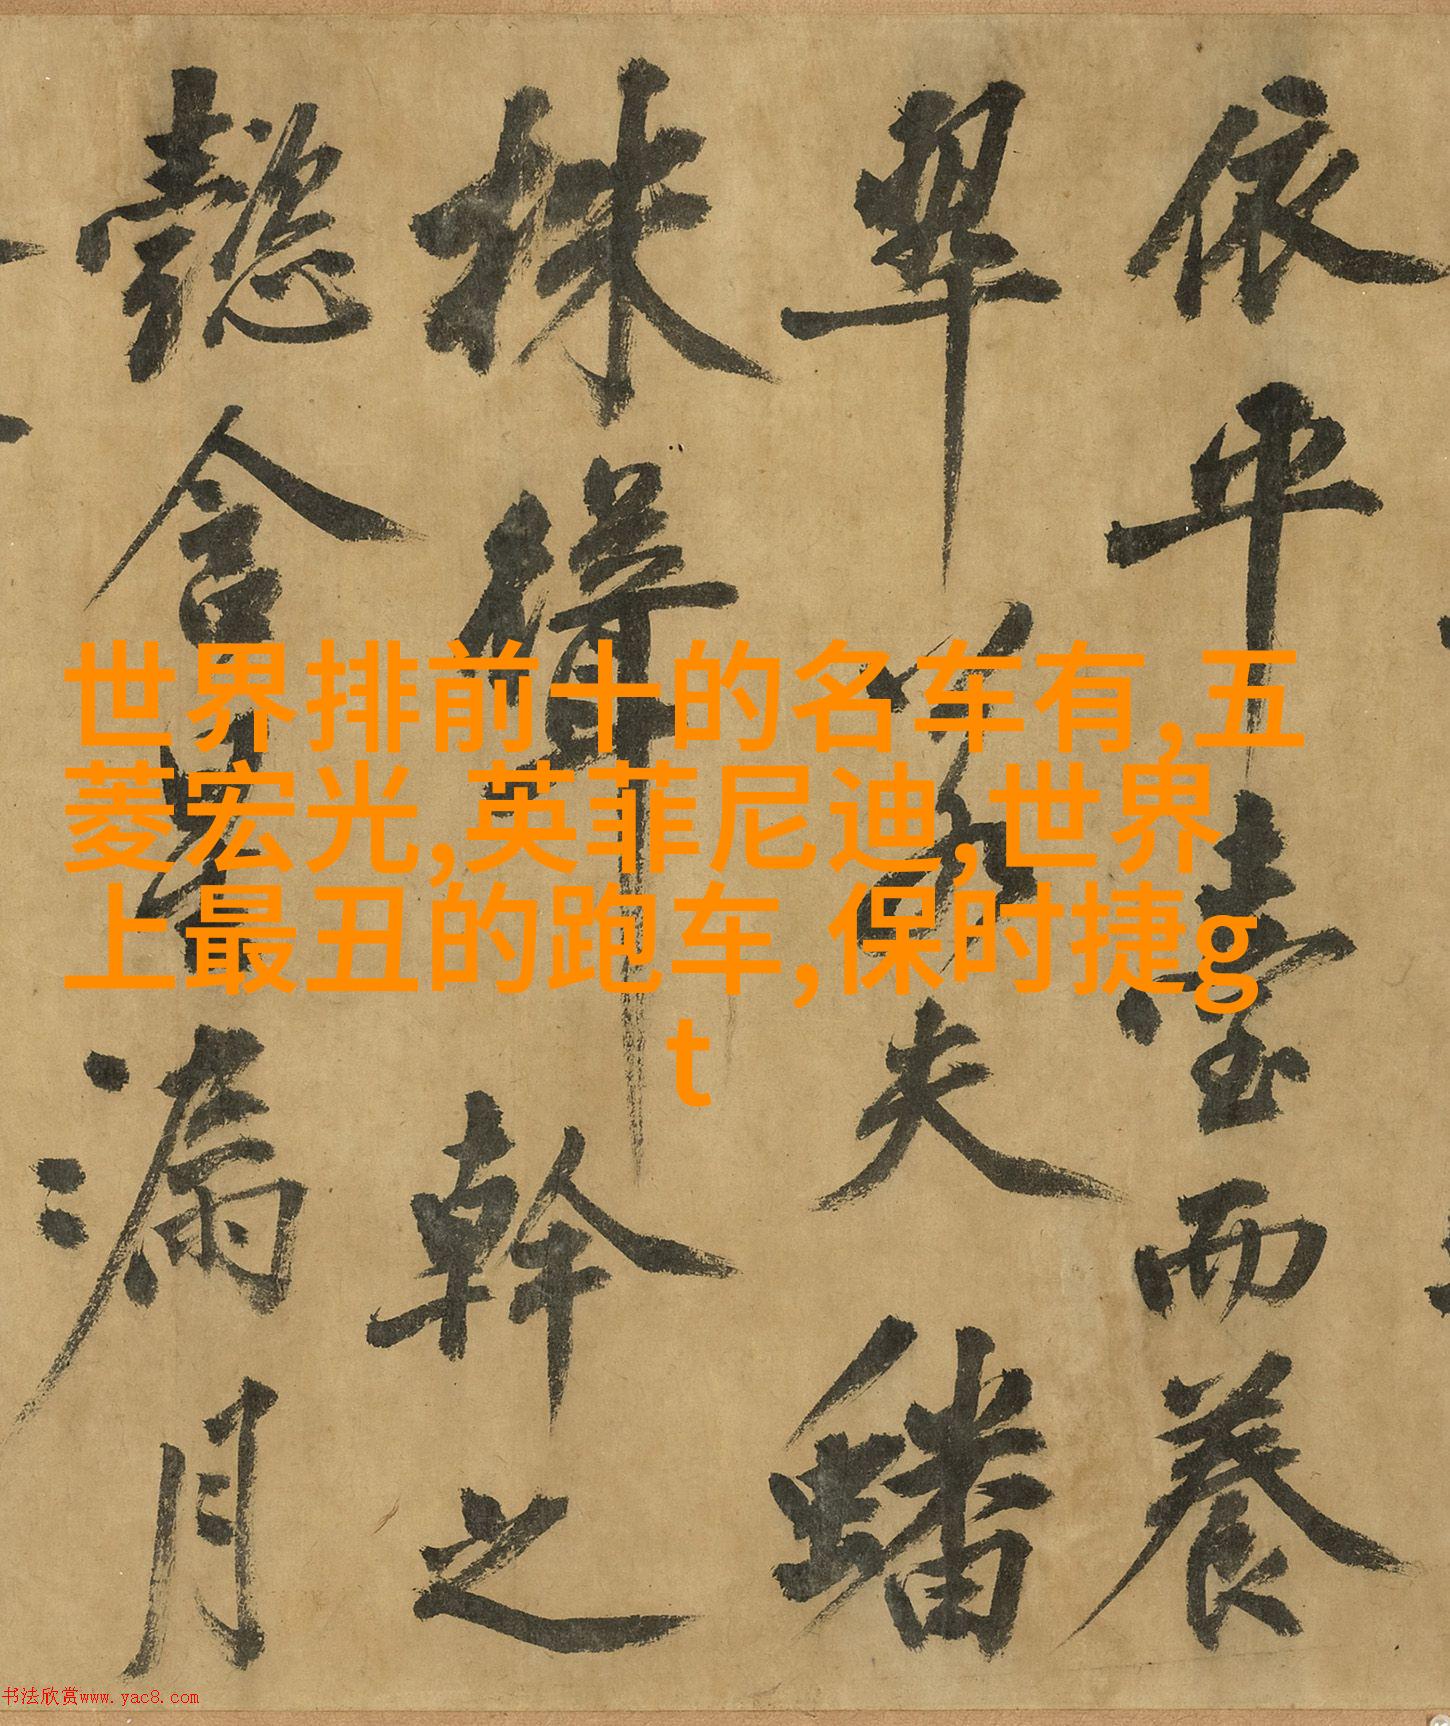 依平臺而養
翠若夫蟠
株得幹之
懿含星漏月
世界排前十的名车有,五
菱宏光,英菲尼迪,世界
上最丑的跑车,保时捷g
t
书法欣赏www.yac8.com